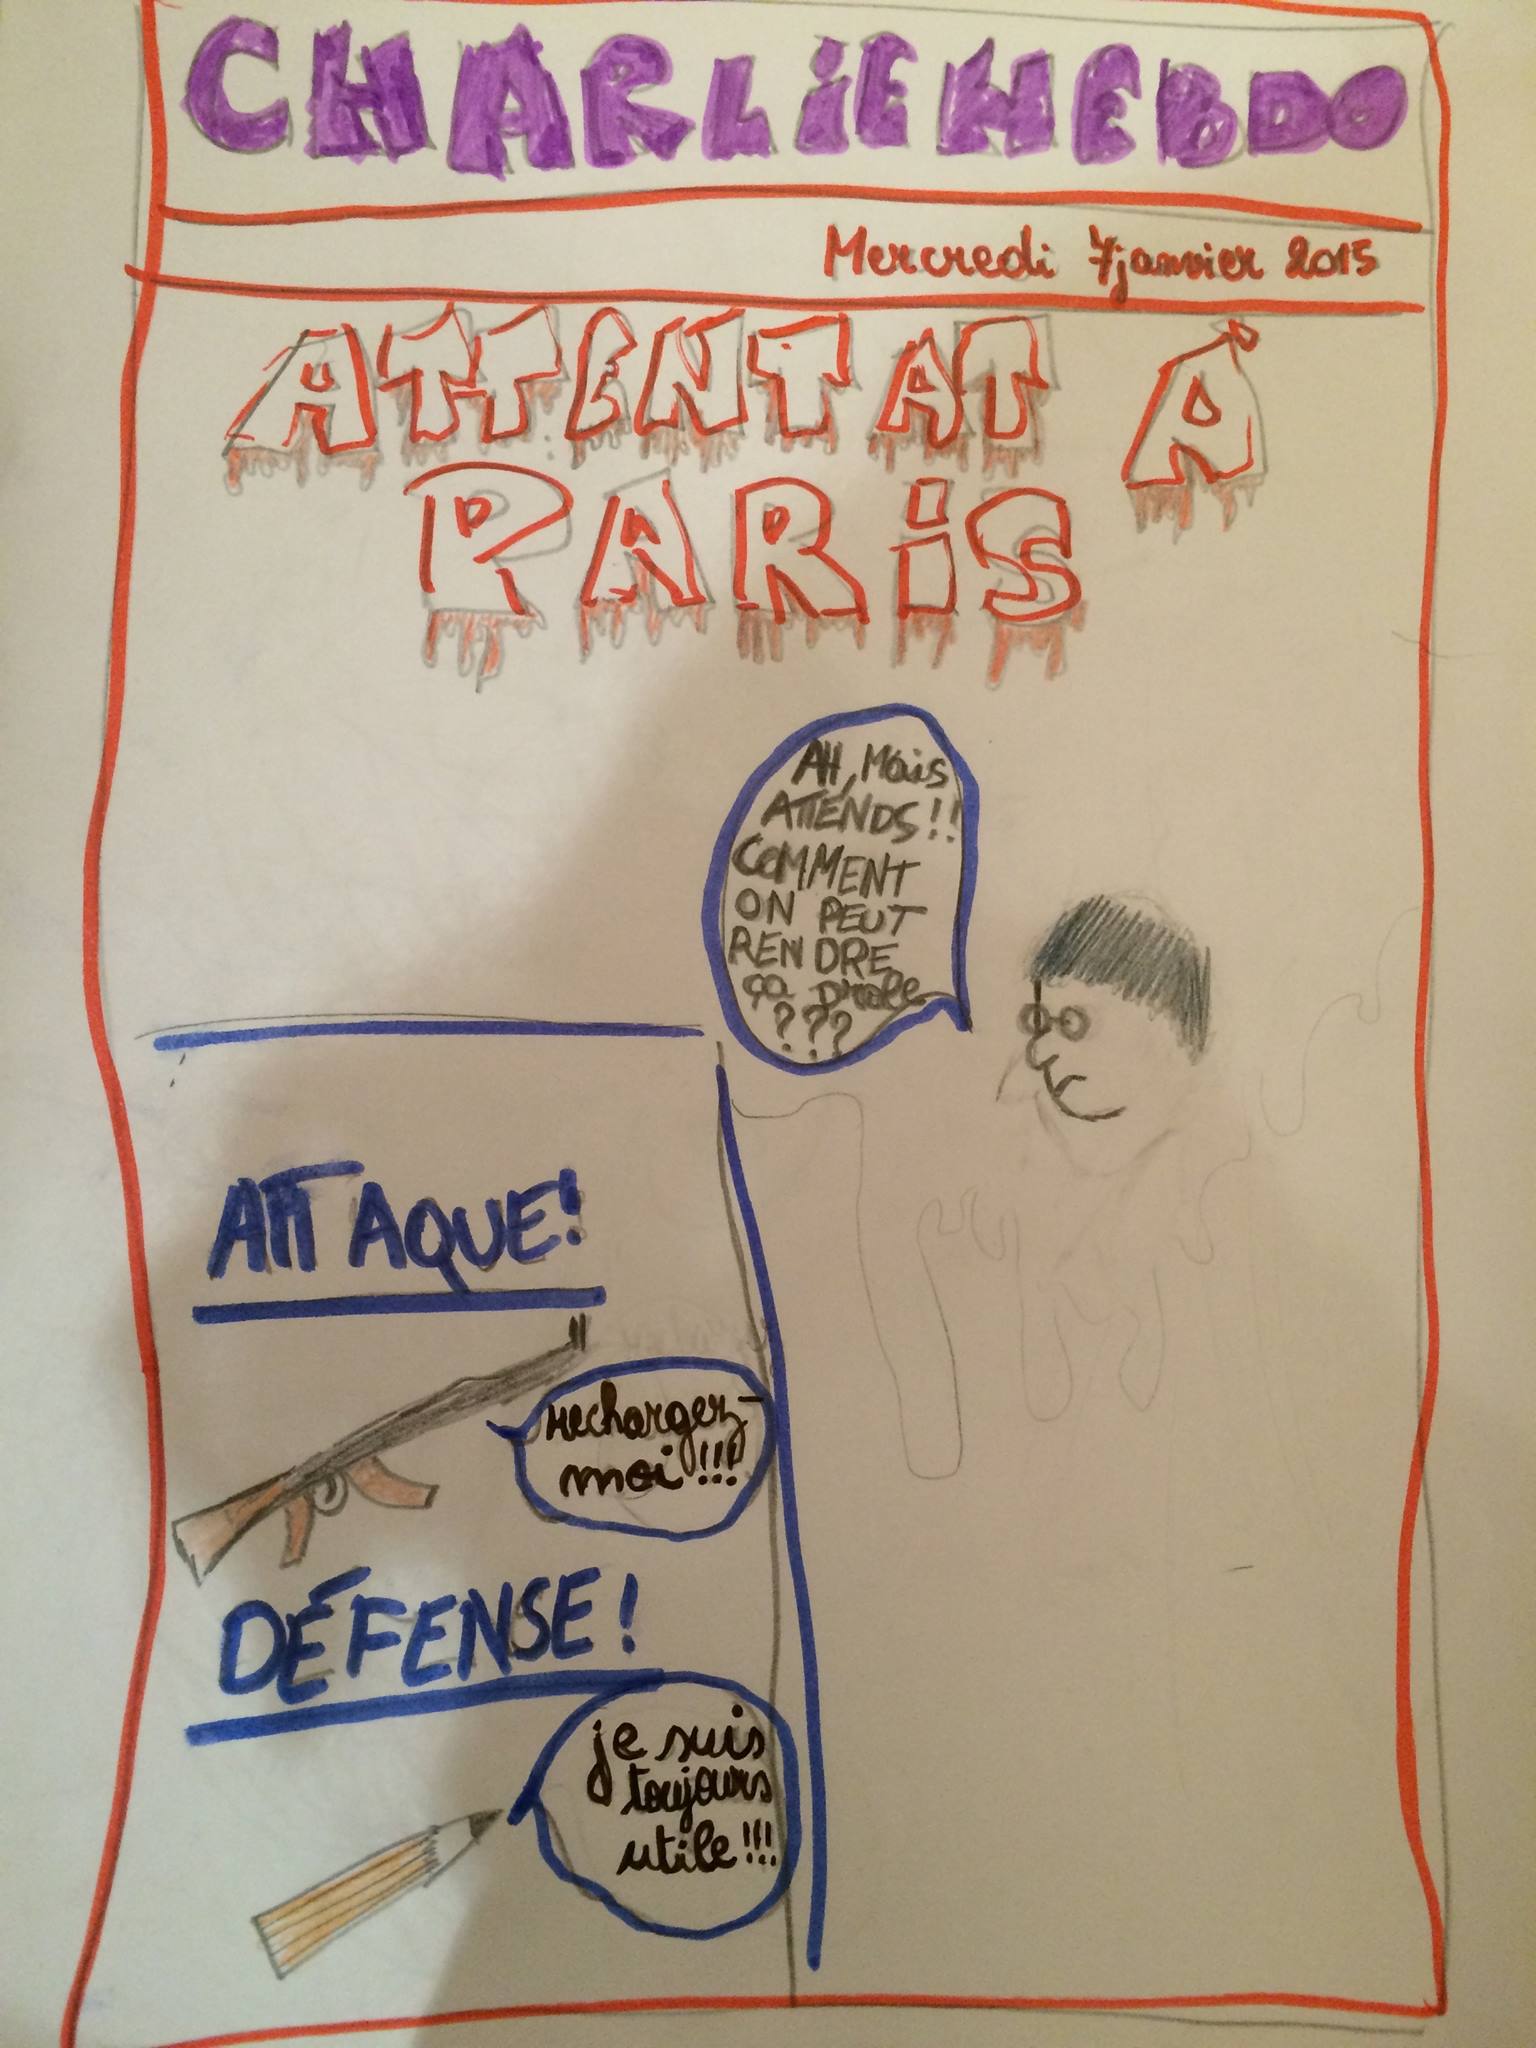 CHARLIE HEBDO
Mercredi 7 janvier 2015
ATTENTAT À
PARIS
AH, Mais
ATTENDS!!
COMMENT
ON PEUT
RENDRE
ça Drole
???
ATTAQUE!
rechargez-
moi!!!
DÉFENSE!
je suis
toujours
utile!!!